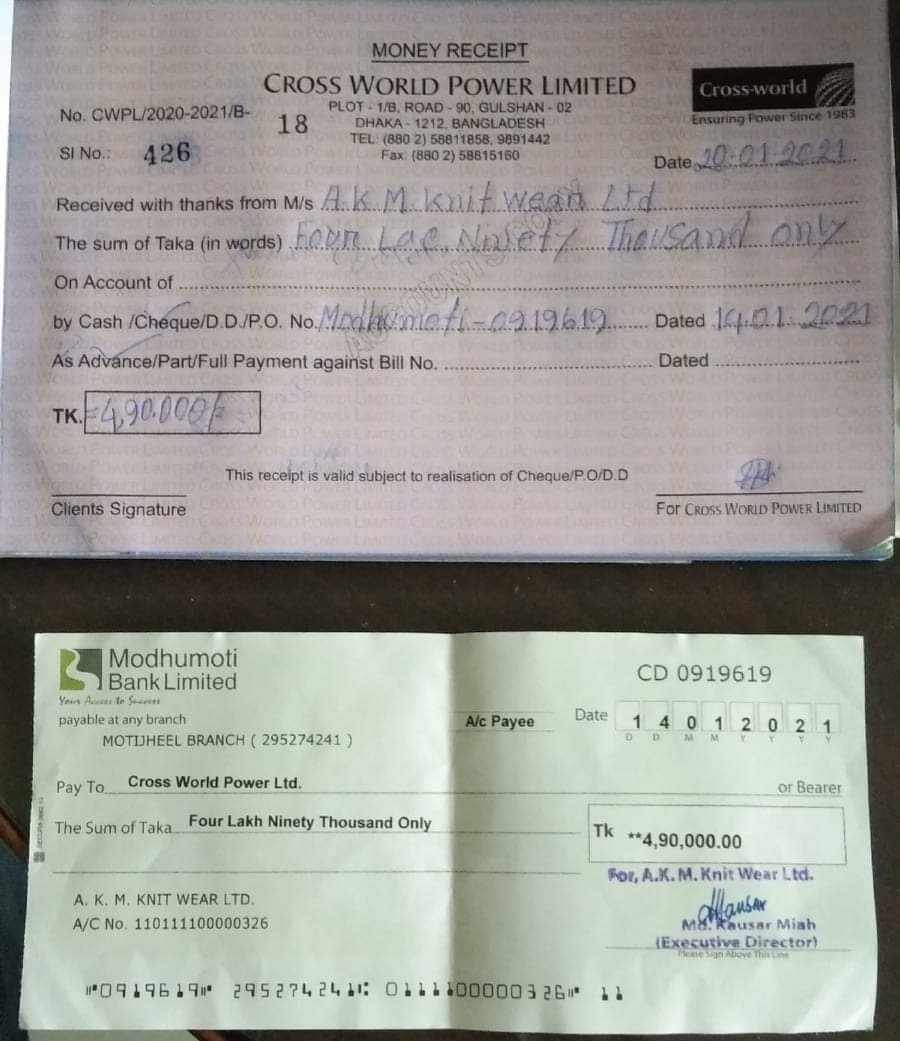 MONEY RECEIPT
CROSS WORLD POWER LIMITED
PLOT - 1/B, ROAD - 90, GULSHAN - 02
DHAKA - 1212, BANGLADESH
TEL: (880 2) 58811858, 9891442
Fax: (880 2) 58815160
Cross-world
Ensuring Power Since 1983
No. CWPL/2020-2021/B- 18
Sl No.: 426
Date 20.01.2021
Received with thanks from M/s A.K.M. Knit wear Ltd
The sum of Taka (in words) Four Lac Ninety Thousand only
On Account of
by Cash /Cheque/D.D./P.O. No. Modhumoti-0919619 Dated 14.01.2021
As Advance/Part/Full Payment against Bill No. Dated
TK. =4,90.000/=
This receipt is valid subject to realisation of Cheque/P.O/D.D
Clients Signature
For CROSS WORLD POWER LIMITED
Modhumoti
Bank Limited
Your Access to Success
CD 0919619
payable at any branch
A/c Payee
Date 14012021
D D M M Y Y Y Y
MOTIJHEEL BRANCH ( 295274241 )
Pay To Cross World Power Ltd. or Bearer
The Sum of Taka Four Lakh Ninety Thousand Only
Tk **4,90,000.00
For, A.K.M. Knit Wear Ltd.
A. K. M. KNIT WEAR LTD.
A/C No. 110111100000326
Md. Kausar Miah
(Executive Director)
Please Sign Above This Line
⑈0919619⑈ 295274241⑆ 0111100000326⑈ 11